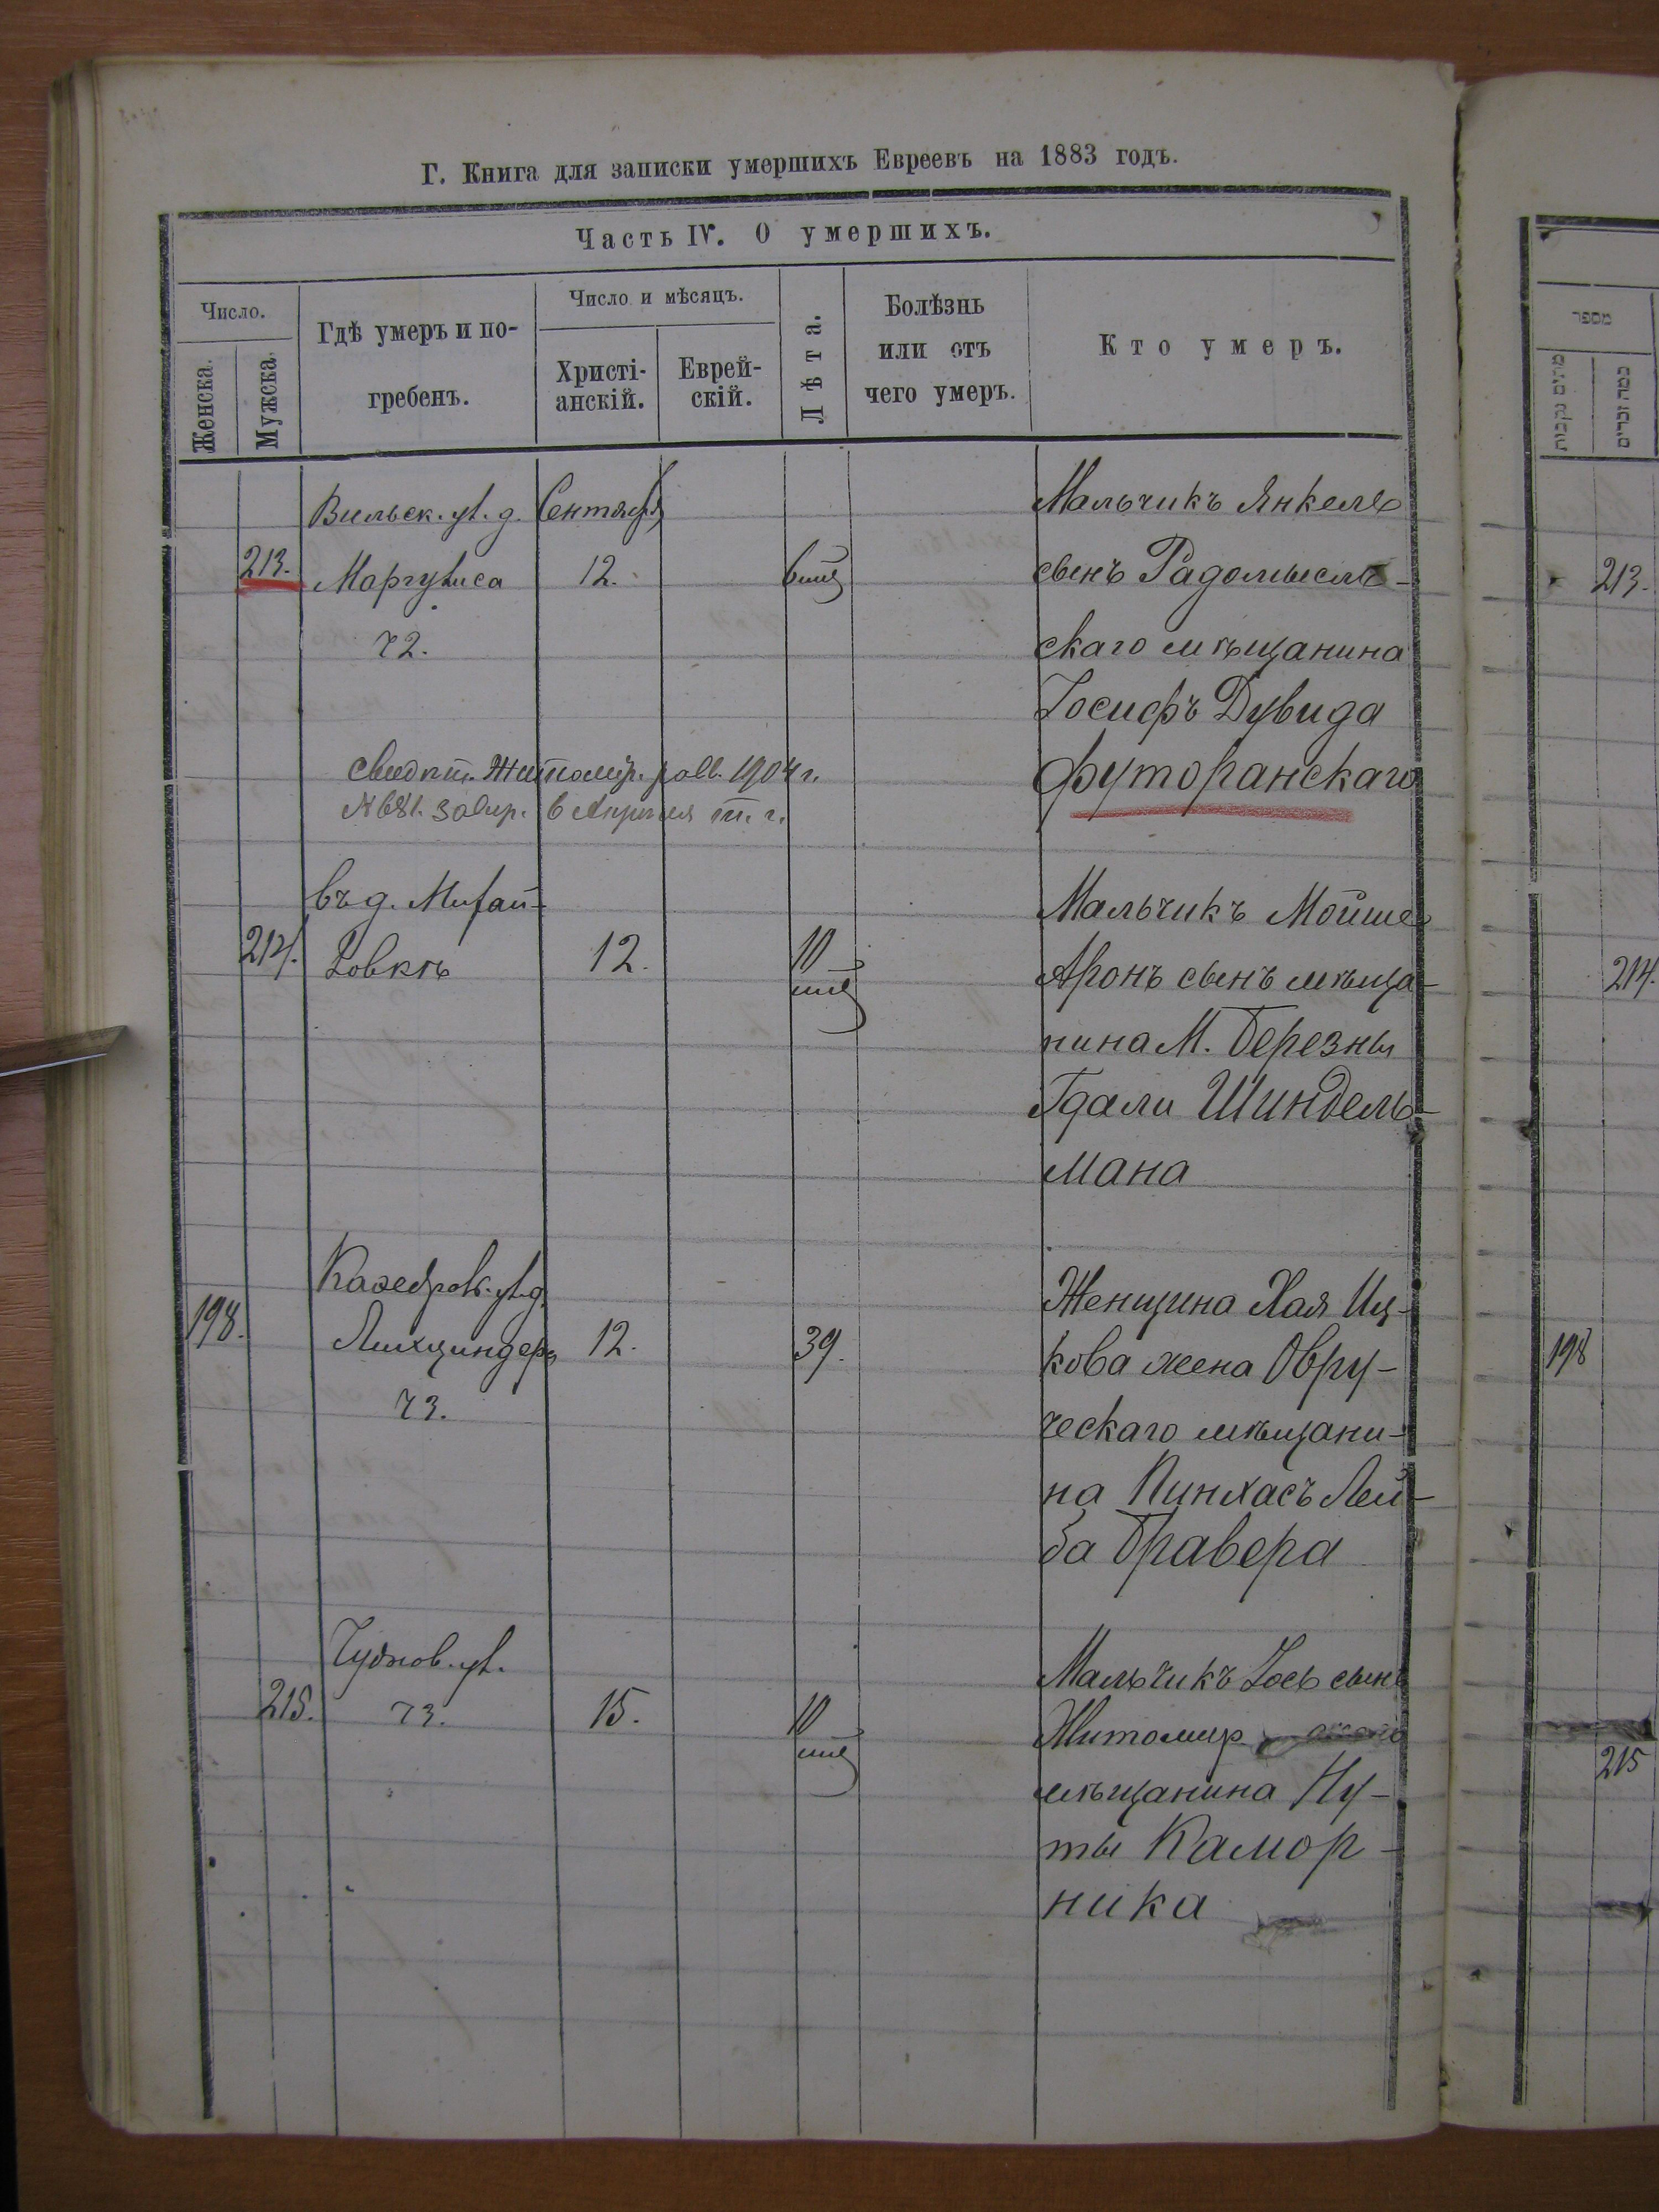 Г. Книга для записки умершихъ Евреевъ на 1883 годъ.
Часть IV. О умершихъ.
Число.
Женска.
Мужска.
Гдѣ умеръ и по-
гребенъ.
Число и мѣсяцъ.
Христі-
анскій.
Еврей-
скій.
Лѣта.
Болѣзнь
или отъ
чего умеръ.
Кто умеръ.
מספר
213.
Вильск. ул. д.
Маргулиса
72.
Сентября
12.
Мальчикъ Янкель
сынъ Радомысль-
скаго мѣщанина
Іосифъ Дувида
Футоранскаго
свидѣт. Житомір. равв. 1904 г.
т. г.
214.
въ д.
12.
10
мц
Мальчикъ Мойше
Аронъ сынъ мѣща-
нина М. Березны
Гдали Шиндель-
мана
198.
Каѳедров. ул. д.
73.
12.
39.
Женщина Хая Иц-
кова жена Овру-
ческаго мѣщани-
на Пинхасъ Лей-
ба Бравера
215.
Чуднов. ул.
73.
15.
10
мц
Мальчикъ Іось сынъ
Житомир
мѣщанина Ну-
ты Камор-
ника
213.
214.
198
215